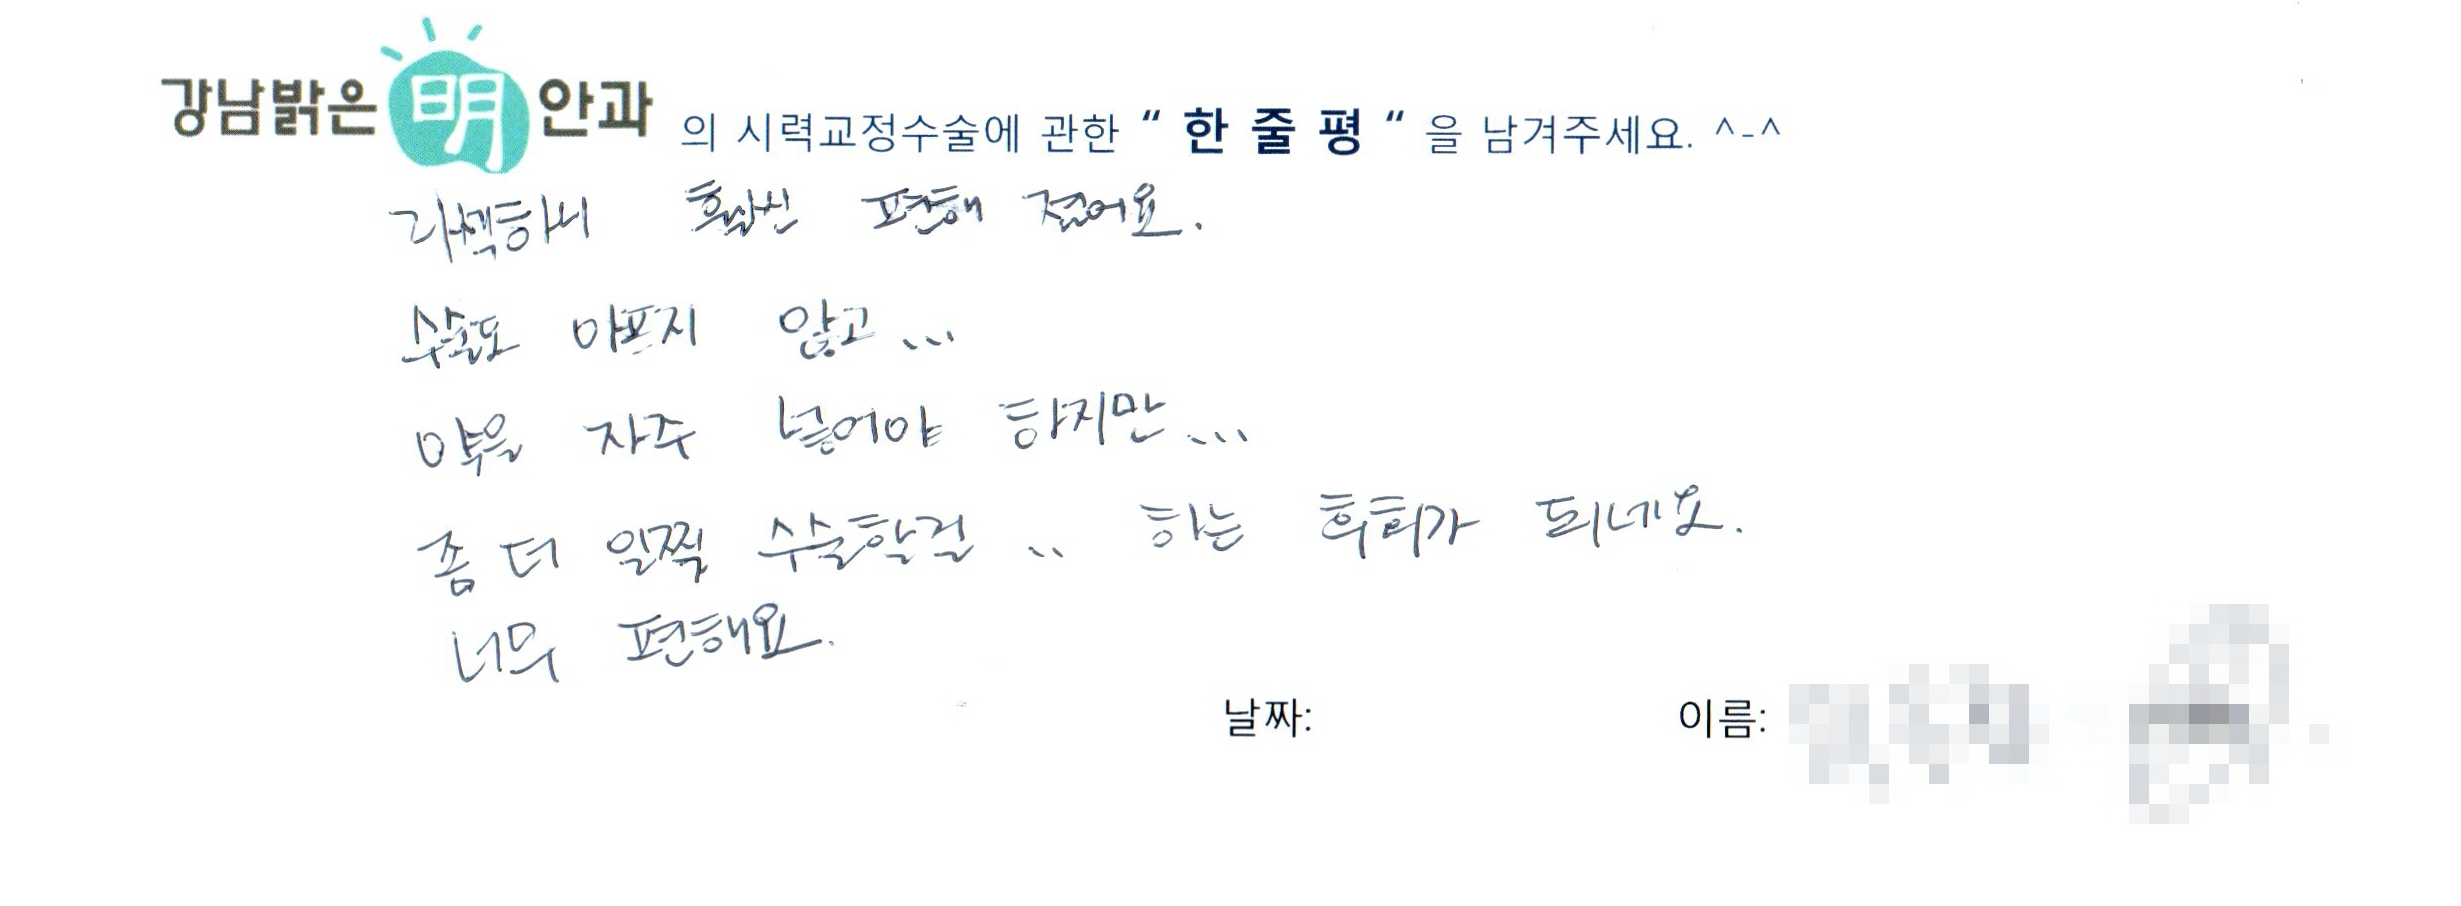 강남밝은 明 안과 의 시력교정수술에 관한 “ 한 줄 평 “ 을 남겨주세요. ^-^
라섹하니 훨씬 편해 졌어요.
수술도 아프지 않고...
약을 자주 넣어야 하지만...
좀 더 일찍 수술할걸 .. 하는 후회가 되네요.
너무 편해요.
날짜: 이름: